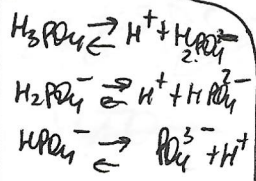 H₃PO₄ ⇌ H⁺ + H₂PO₄²⁻
H₂PO₄⁻ ⇌ H⁺ + HPO₄²⁻
HPO₄⁻ ⇌ PO₄³⁻ + H⁺